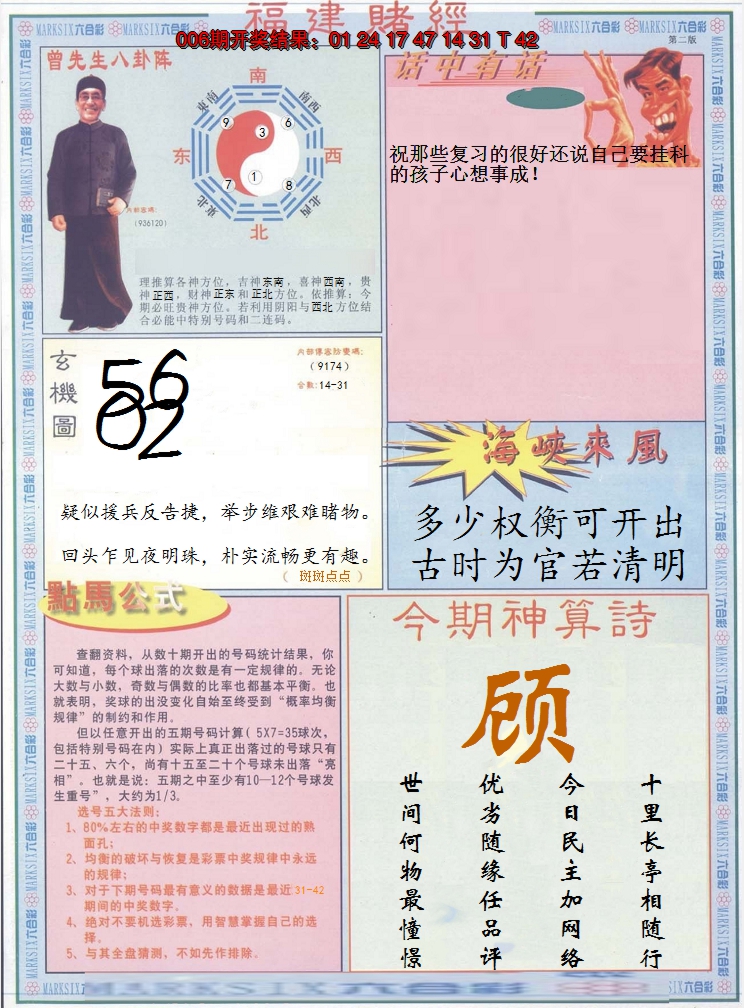 福建賭經
006期开奖结果：01 24 17 47 14 31 T 42
MARKSIX六合彩
第二版
曾先生八卦阵
南
東南
南西
9
3
6
东
西
7
1
8
東北
北西
北
内部密碼：
(936120)
理推算各神方位，吉神东南，喜神西南，贵
神正西，财神正东和正北方位。依推算：今
期必旺贵神方位。若利用阴阳与西北方位结
合必能中特别号码和二连码。
话中有话
祝那些复习的很好还说自己要挂科
的孩子心想事成！
玄機圖
56
02
（9174）
合数：14-31
疑似援兵反告捷，举步维艰难睹物。
回头乍见夜明珠，朴实流畅更有趣。
（ 斑斑点点 ）
海峡來風
多少权衡可开出
古时为官若清明
點馬公式
查翻资料，从数十期开出的号码统计结果，你
可知道，每个球出落的次数是有一定规律的。无论
大数与小数，奇数与偶数的比率也都基本平衡。也
就表明，奖球的出没变化自始至终受到“概率均衡
规律”的制约和作用。
但以任意开出的五期号码计算( 5X7=35球次，
包括特别号码在内) 实际上真正出落过的号球只有
二十五、六个，尚有十五至二十个号球未出落“亮
相”。也就是说：五期之中至少有10—12个号球发
生重号”，大约为1/3。
选号五大法则：
1、80%左右的中奖数字都是最近出现过的熟
面孔；
2、均衡的破坏与恢复是彩票中奖规律中永远
的规律；
3、对于下期号码最有意义的数据是最近31-42
期间的中奖数字。
4、绝对不要机选彩票，用智慧掌握自己的选
择。
5、与其全盘猜测，不如先作排除。
今期神算詩
顾
十里长亭相随行
今日民主加网络
优劣随缘任品评
世间何物最憧憬